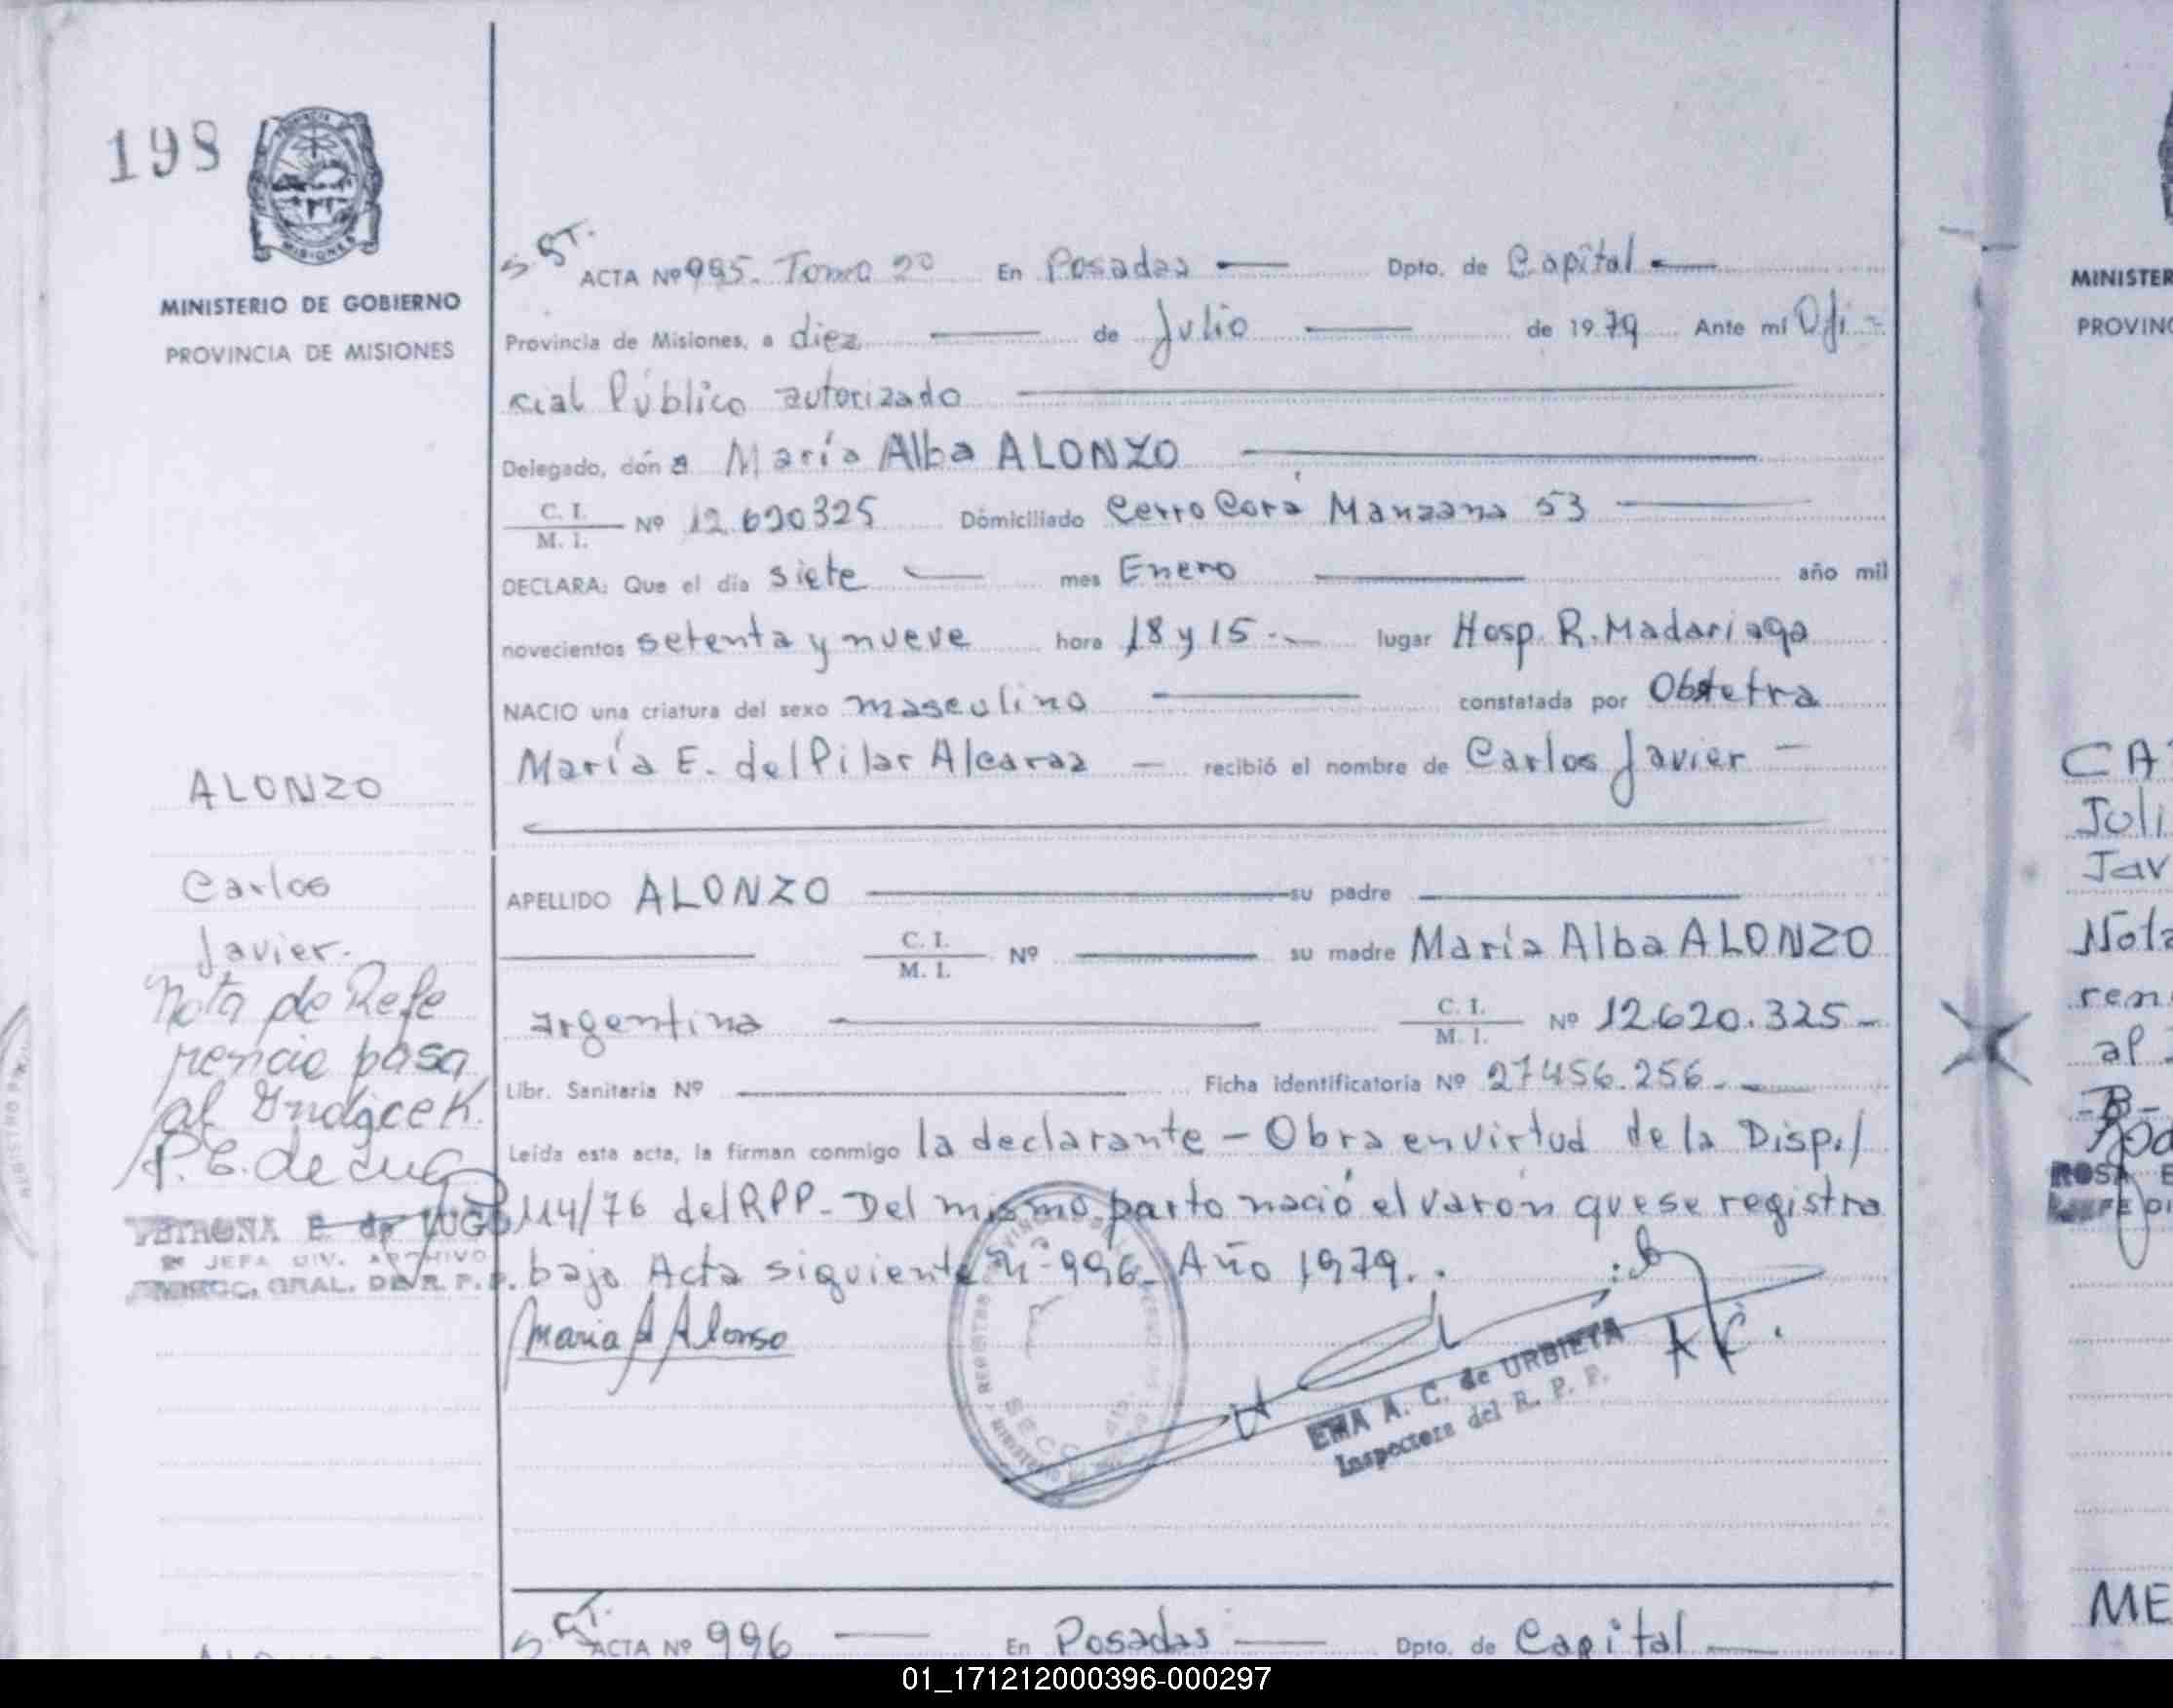 198
MINISTERIO DE GOBIERNO
PROVINCIA DE MISIONES
S. ST.
ACTA Nº 995. Tomo 2º En Posadas Dpto. de Capital
Provincia de Misiones, a diez de Julio de 1979 Ante mí Ofi-
cial Público autorizado
Delegado, doña María Alba ALONZO
C. I.
M. I. Nº 12.620325 Domiciliado Cerro Corá Manzana 53
DECLARA: Que el día siete mes Enero año mil
novecientos setenta y nueve hora 18 y 15.- lugar Hosp. R. Madariaga
NACIO una criatura del sexo masculino constatada por Obstetra
María E. del Pilar Alcaraz — recibió el nombre de Carlos Javier —
APELLIDO ALONZO su padre
C. I.
M. I. Nº su madre María Alba ALONZO
argentina C. I.
M. I. Nº 12.620.325-
Libr. Sanitaria Nº Ficha Identificatoria Nº 27456.256.-
Leída esta acta, la firman conmigo la declarante - Obra en virtud de la Disp./
114/76 del RPP- Del mismo parto nació el varón que se registra
bajo Acta siguiente nº 996- Año 1979.
Maria A Alonso
EMA A. C. de URBIETA
Inspectora del R. P. P.
ALONZO
Carlos
Javier.
Nota de Refe
rencia pasa
al Indice K.
P. E. de Lugo
PETRONA E. de LUGO
JEFA DIV. ARCHIVO
DIRECC. GRAL. DEL R. P. P.
ACTA Nº 996 En Posadas Dpto. de Capital
MINISTER
PROVINC
CA
Juli
Jav
Nota
ren
al
ROSA E
JEFE DI
ME
01_171212000396-000297